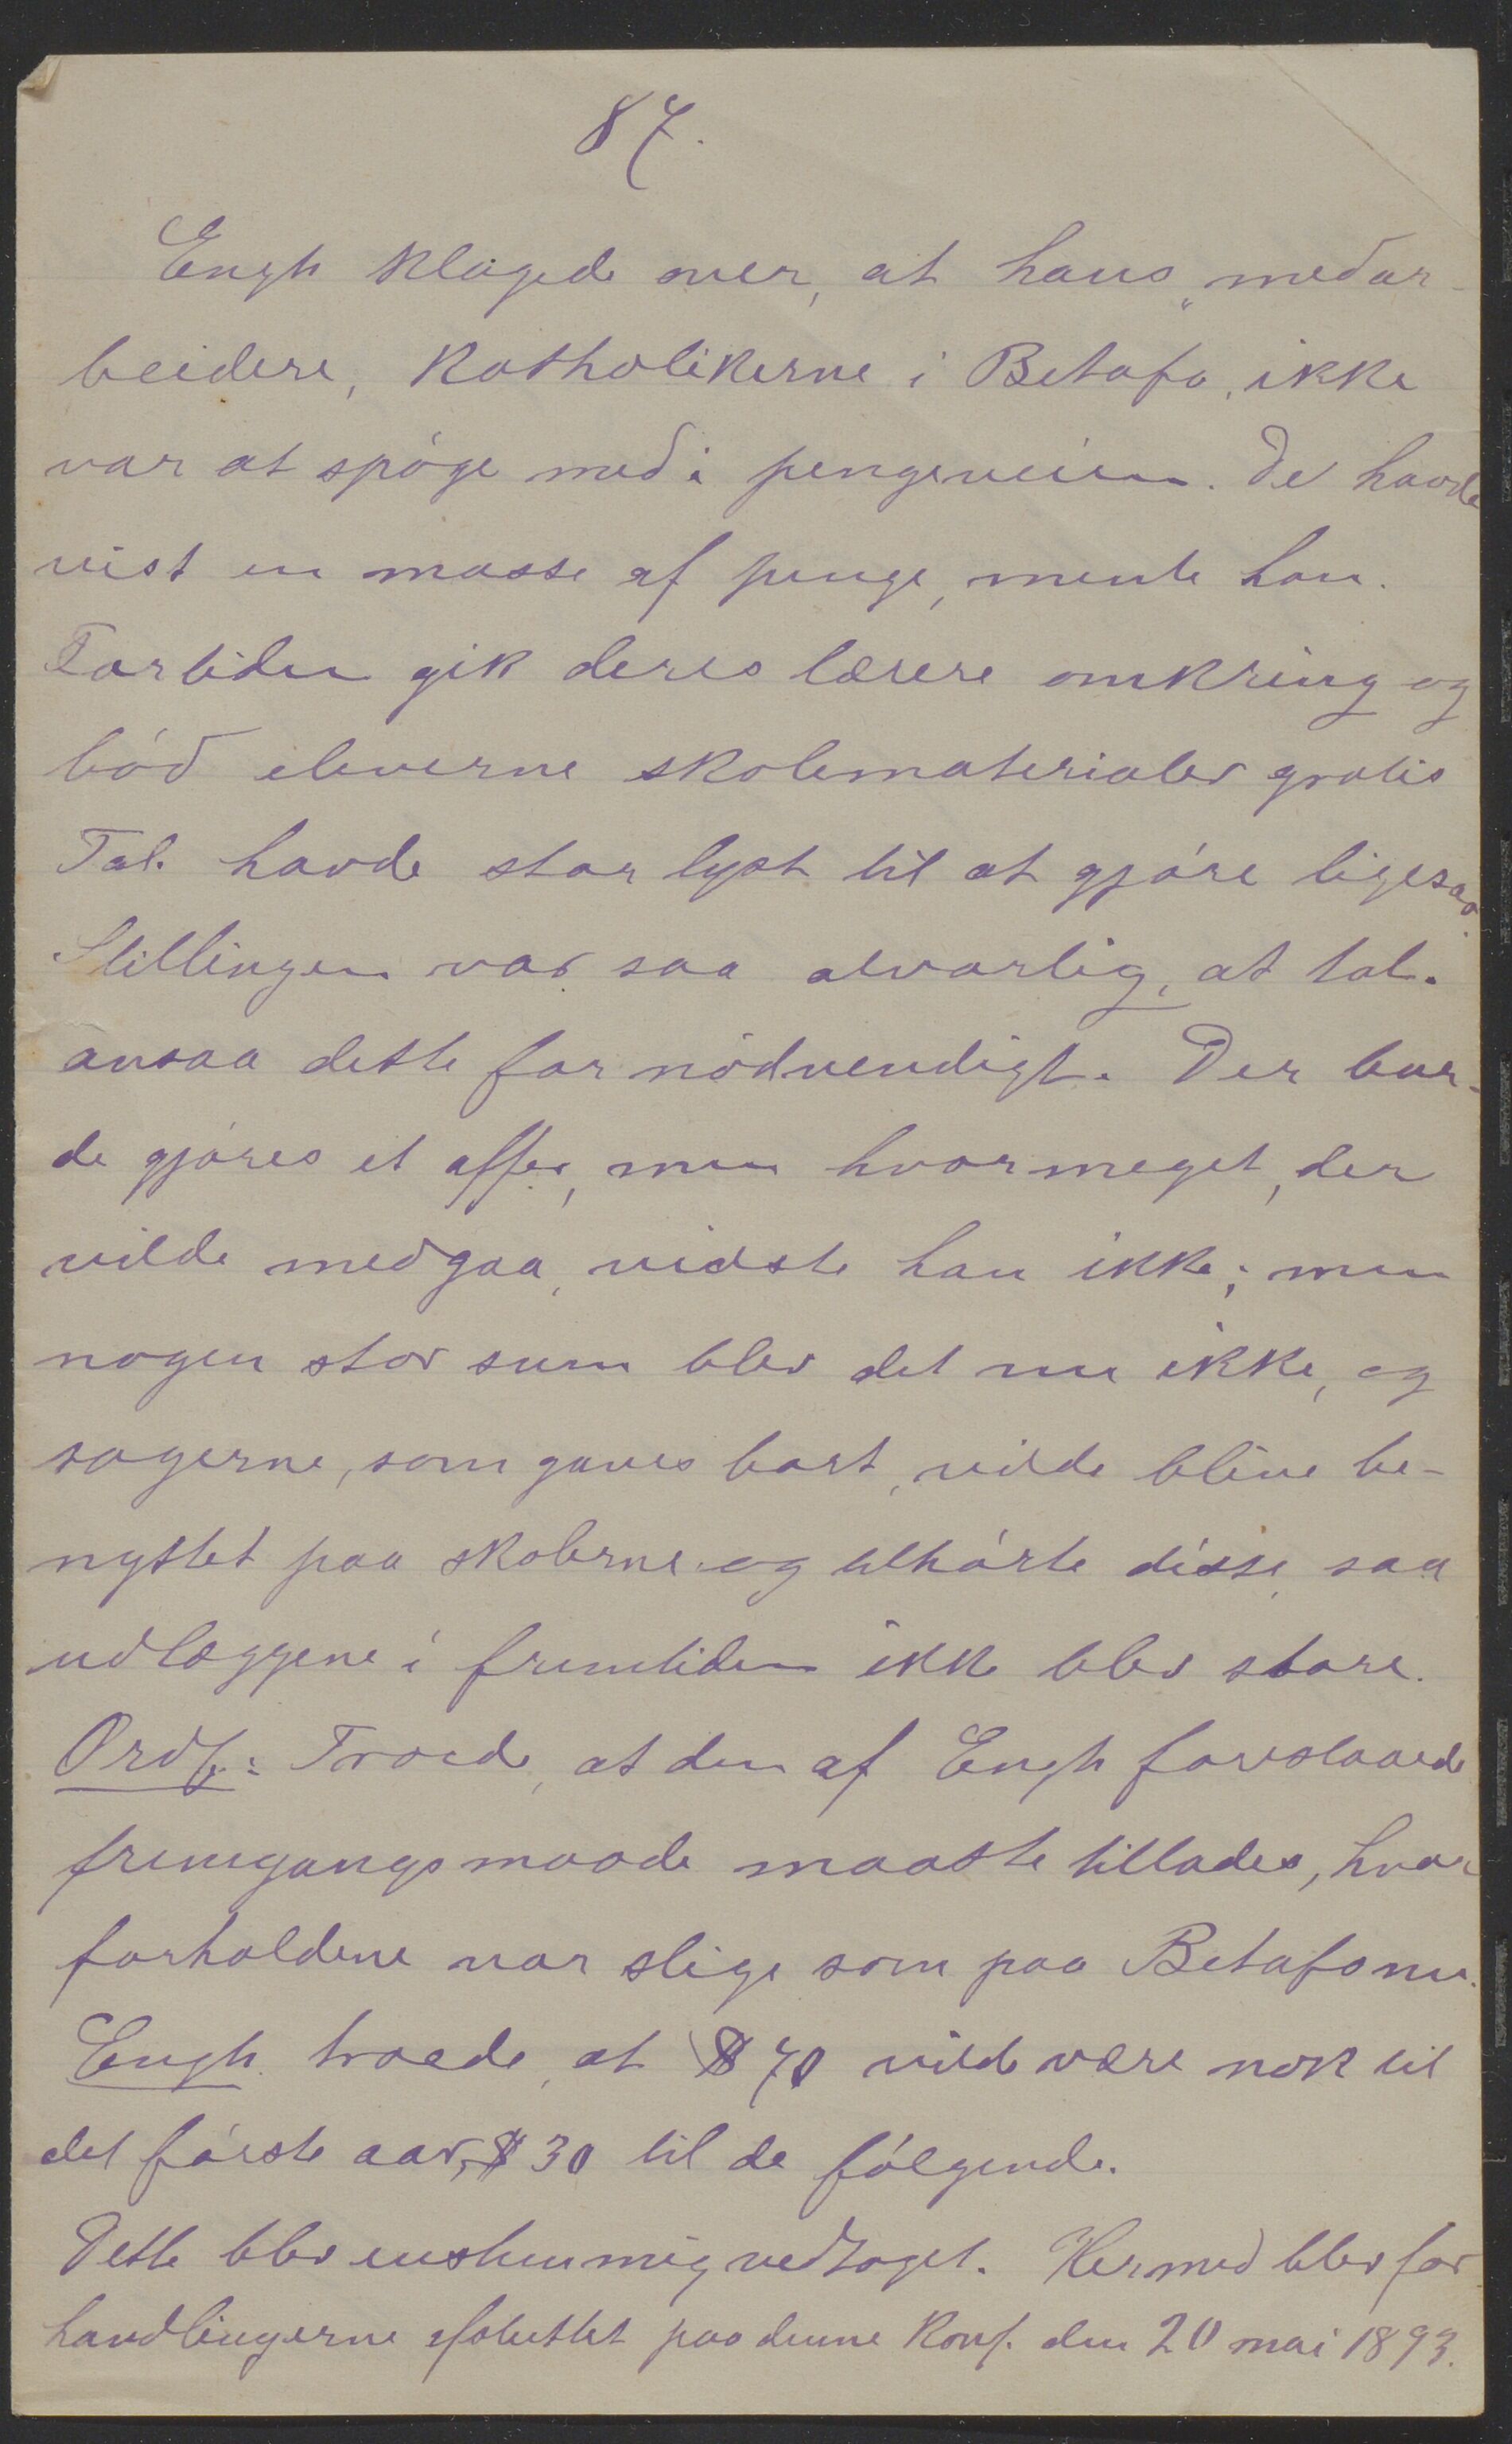 87.
Engh klagede over, at hans „medar-
beidere, Katholikerne i Betafo, ikke
var at spøge med i pengeveien. De havde
vist en masse af penge, mente han.
For tiden gik deres lærere omkring og
bød eleverne skolematerialer gratis
Tal. havde stor lyst til at gjøre ligesaa.
Stillingen var saa alvorlig, at tal.
ansaa dette for nødvendigt. Der bur-
de gjøres et offer, men hvormeget, der
vilde medgaa, vidste han ikke; men
nogen stor sum blev det nu ikke, og
sagerne, som gaves bort, vilde blive be-
nyttet paa skolerne og tilhørte disse, saa
udlæggene i fremtiden ikke blev store.
Ordf.: Troede, at den af Engh foreslaaede
fremgangsmaade maatte tillades, hvor
forholdene var slige som paa Betafo nu.
Engh troede, at $ 70 vilde være nok til
det første aar, $ 30 til de følgende.
Dette blev enstemmig vedtaget. Hermed blev for
handlingerne afsluttet paa denne Konf. den 20 mai 1893.